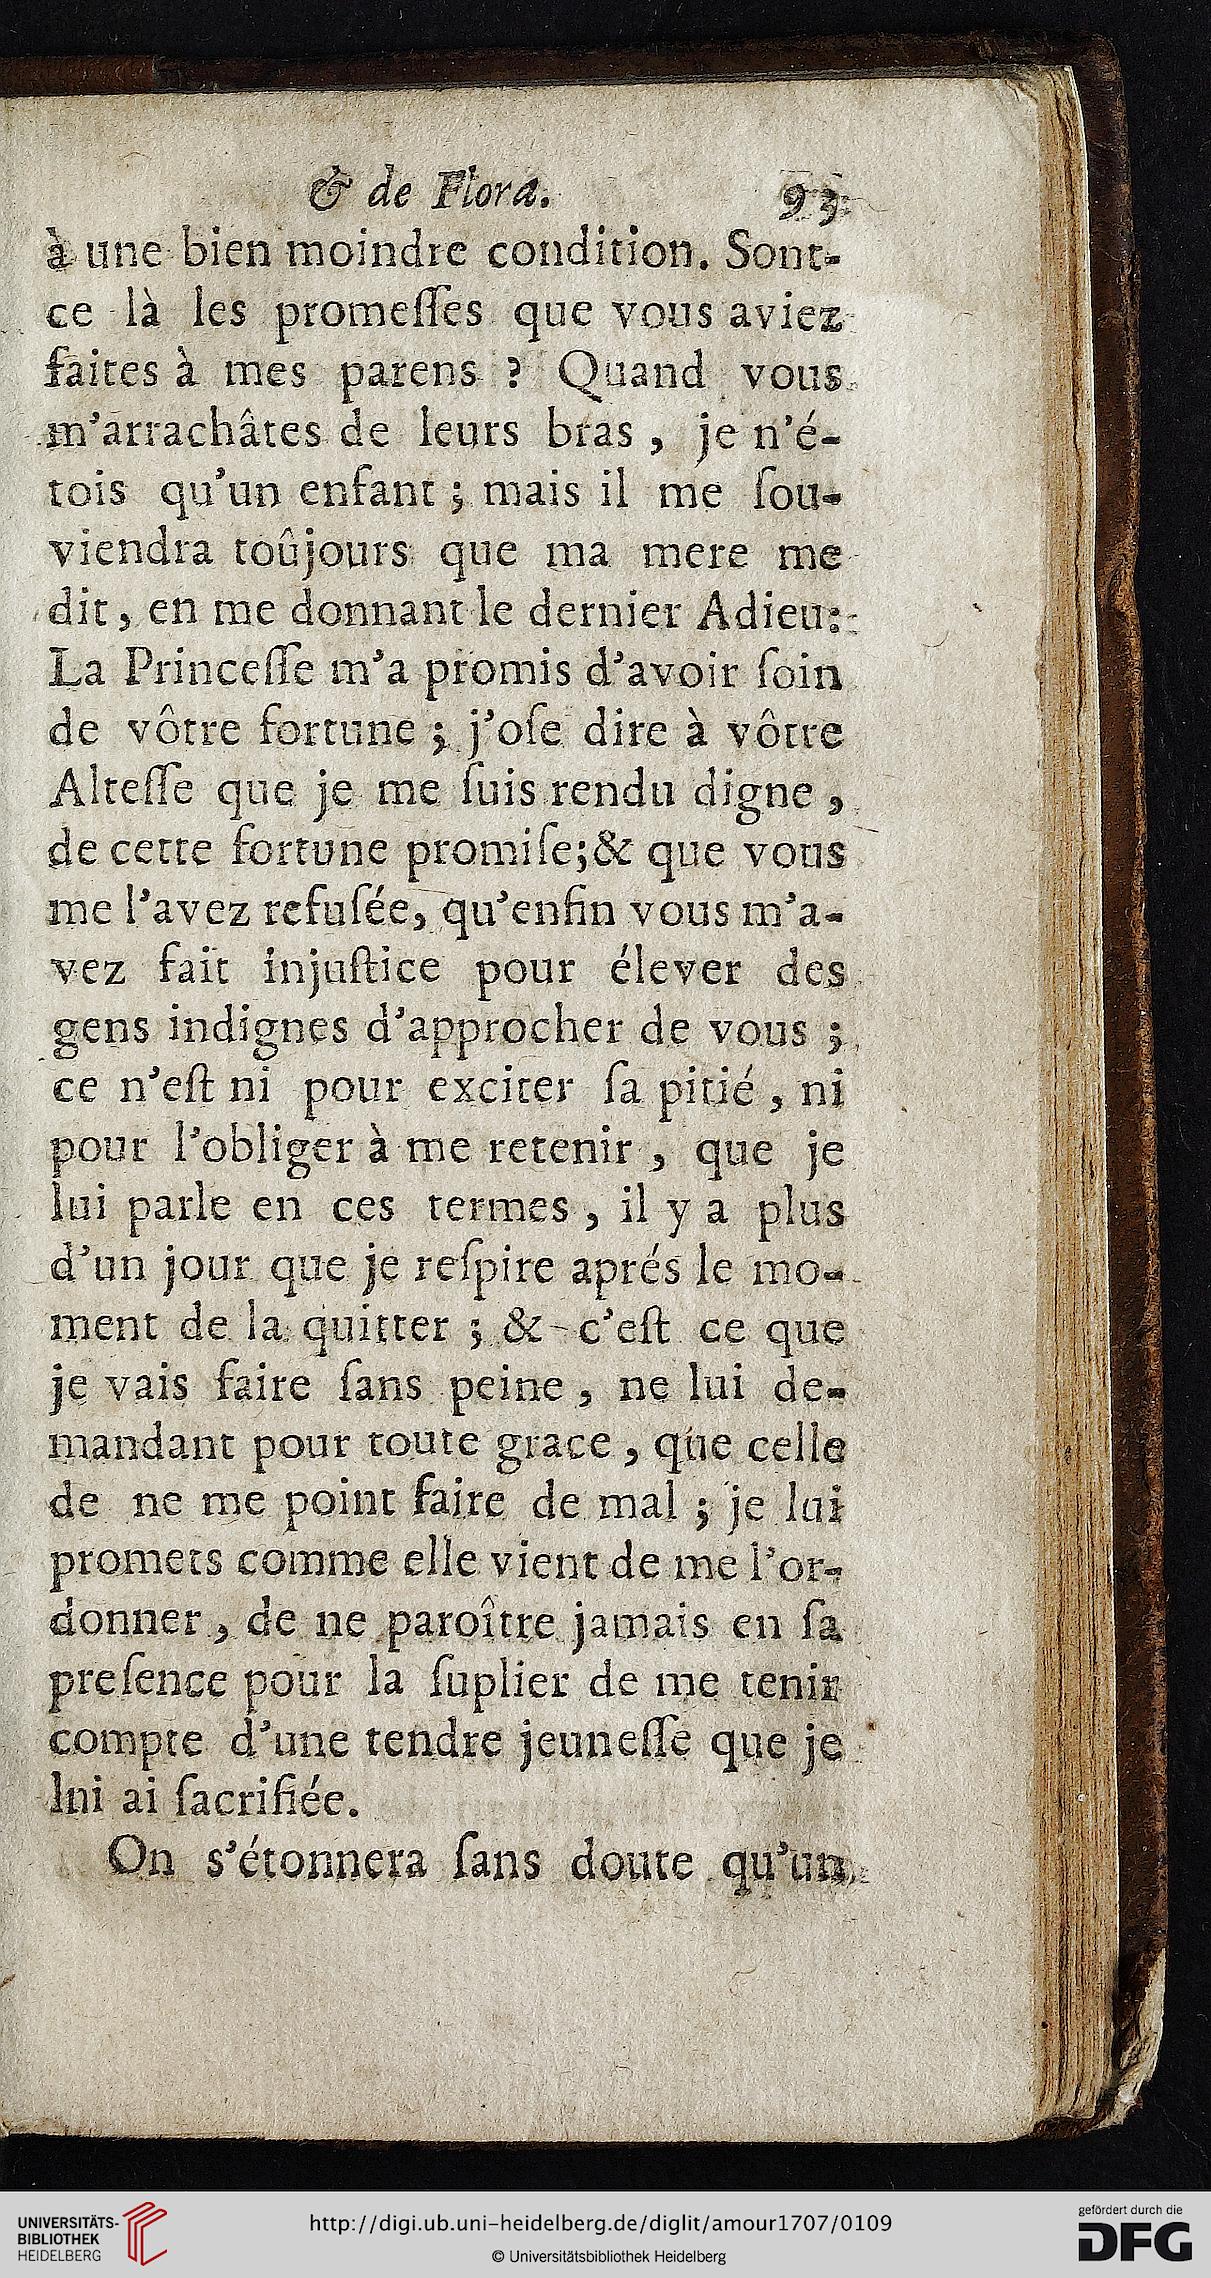 & de Flora. 93
à une bien moindre condition. Sont-
ce là les promeſſes que vous aviez
faites à mes parens ? Quand vous
m'arrachâtes de leurs bras, je n'é-
tois qu'un enfant ; mais il me ſou-
viendra toûjours que ma mere me
dit, en me donnant le dernier Adieu:
La Princeſſe m'a promis d'avoir ſoin
de vôtre fortune ; j'oſe dire à vôtre
Alteſſe que je me ſuis rendu digne,
de cette fortune promiſe;& que vous
me l'avez refuſée, qu'enfin vous m'a-
vez fait injuſtice pour élever des
gens indignes d'approcher de vous ;
ce n'eſt ni pour exciter ſa pitié, ni
pour l'obliger à me retenir, que je
lui parle en ces termes, il y a plus
d'un jour que je reſpire aprés le mo-
ment de la quitter ; & c'eſt ce que
je vais faire ſans peine, ne lui de-
mandant pour toute grace, que celle
de ne me point faire de mal ; je lui
promets comme elle vient de me l'or-
donner, de ne paroître jamais en ſa
preſence pour la ſuplier de me tenir
compte d'une tendre jeuneſſe que je
lui ai ſacrifiée.
On s'étonnera ſans doute qu'un
UNIVERSITÄTS-
BIBLIOTHEK
HEIDELBERG
http://digi.ub.uni-heidelberg.de/diglit/amour1707/0109
© Universitätsbibliothek Heidelberg
gefördert durch die
DFG